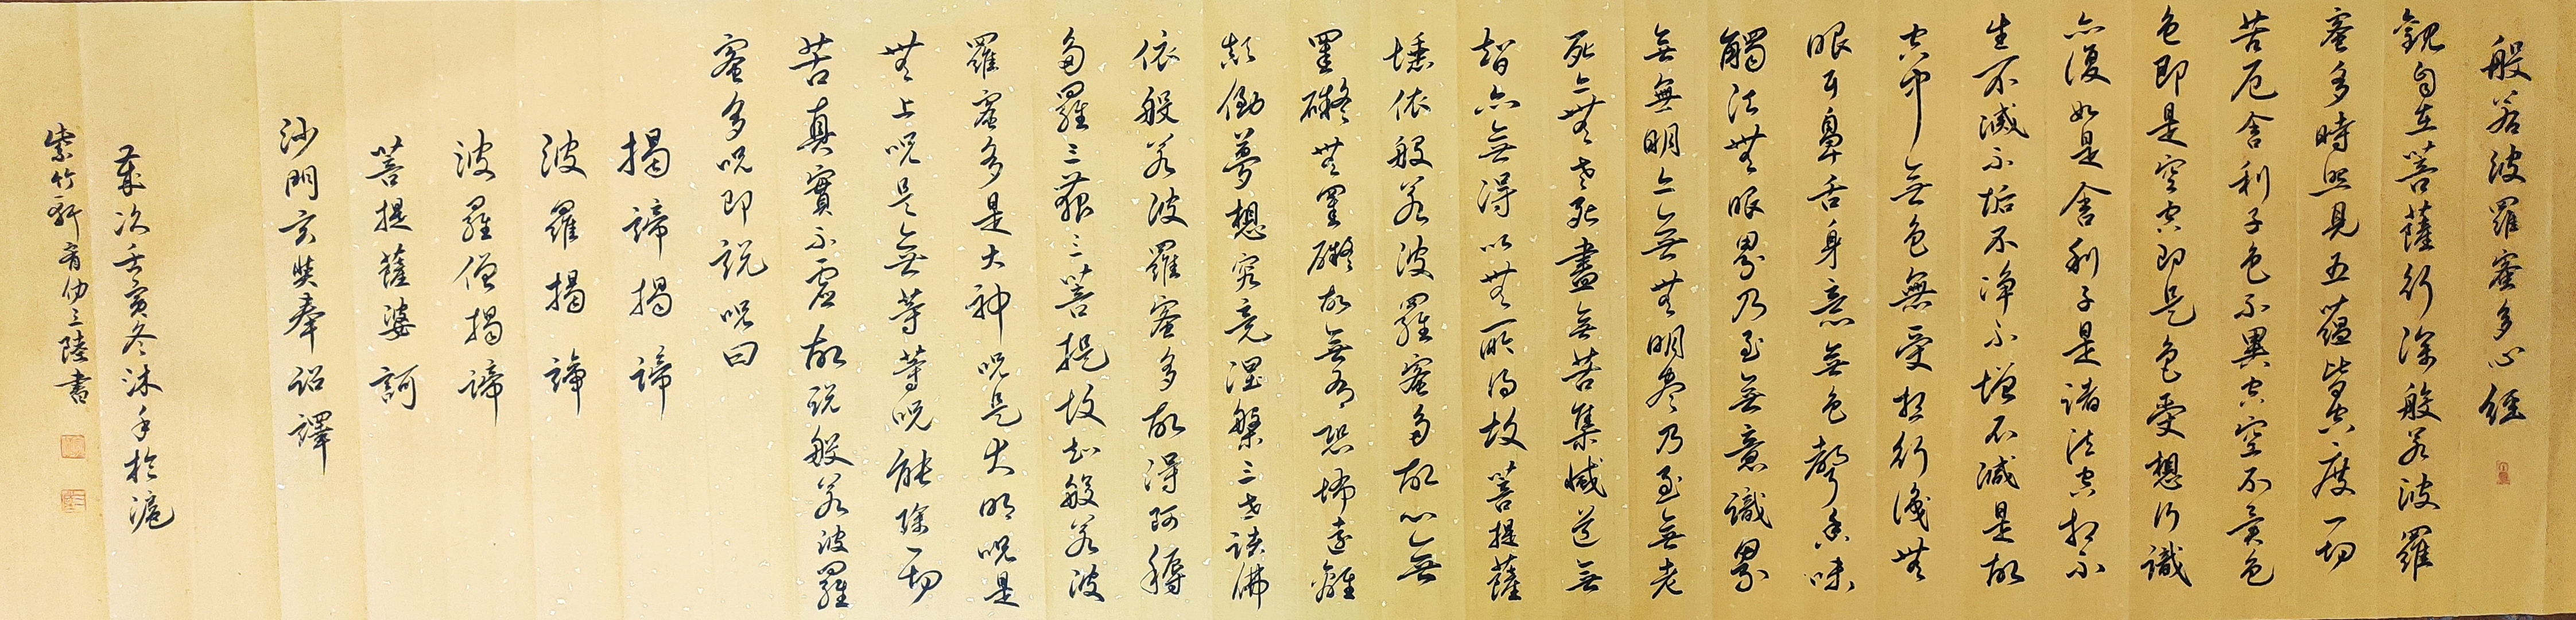 般若波羅蜜多心經
觀自在菩薩行深般若波羅
蜜多時照見五蘊皆空度一切
苦厄舍利子色不異空空不異色
色即是空空即是色受想行識
亦復如是舍利子是諸法空相不
生不滅不垢不淨不增不減是故
空中無色無受想行識無
眼耳鼻舌身意無色聲香味
觸法無眼界乃至無意識界
無無明亦無無明盡乃至無老
死亦無老死盡無苦集滅道無
智亦無得以無所得故菩提薩
埵依般若波羅蜜多故心無
罣礙無罣礙故無有恐怖遠離
顛倒夢想究竟涅槃三世諸佛
依般若波羅蜜多故得阿耨
多羅三藐三菩提故知般若波
羅蜜多是大神咒是大明咒是
無上咒是無等等咒能除一切
苦真實不虛故說般若波羅
蜜多咒即說咒曰
揭諦揭諦
波羅揭諦
波羅僧揭諦
菩提薩婆訶
沙門玄奘奉詔譯
歲次壬寅冬沐手於滬
紫竹軒 三陸書